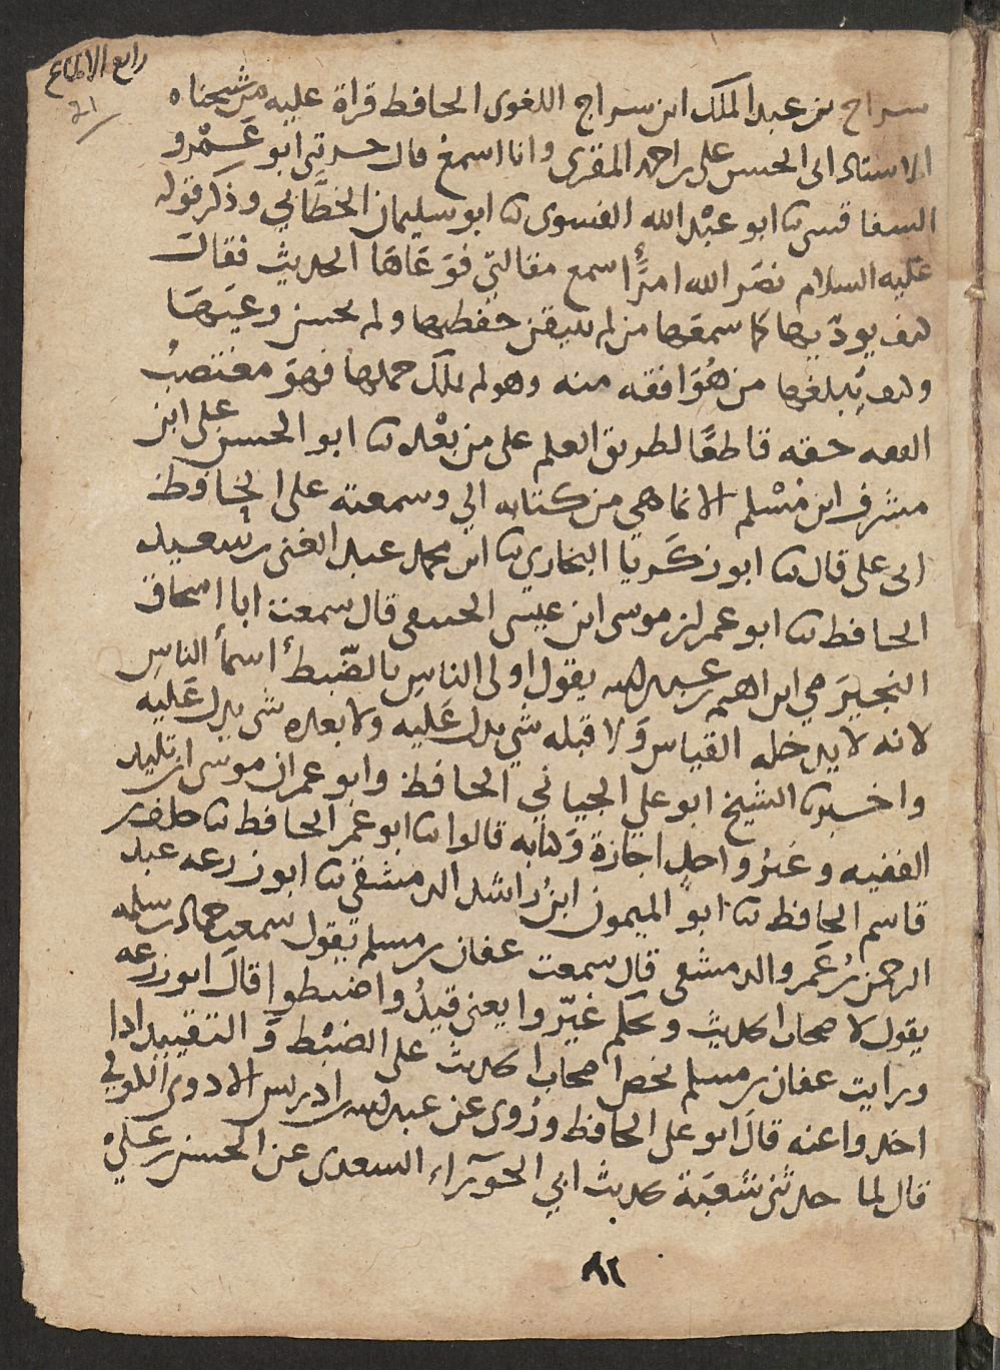 رابع الالماع
21
سراج بن عبد الملك ابن سراج اللغوى الحافظ قراة عليه من شيخناه
الاستاد ابى الحسن على بن احمد المقرى وانا اسمع قال حدثنى ابو عَمْرو
السفاقسى نا ابو عبْد الله الفسوى نا ابو سليمان الخطَّابي وذكر قوله
عليه السلام نضر الله امرًأ سمع مقالتي فوَعَاهَا الحديث فقالَ
كيف يودّيها كما سمعها من لم يتيقن حفظها ولم يحسن وعيَهَا
وكيف يُبلغها من هُوَ افقه منه وهو لم يملك حملها فهوَ مغتصبُ
الفقه حقه قاطعًا لطريق العلم على من بعْده نا ابو الحسن على ابن
مشرف ابن مُسْلم الانماطي من كتابه الي وسمعته على الحافظ
ابى على قال نا ابو زكَريا البخاري نا ابن محمد عبد الغنى بن سعيد
الحافظ نا ابو عمران موسى ابن عيسى الحنيفى قال سمعت ابا اسحاق
النجيرَمي ابراهيم بن عبد الله يقول اولى الناس بالضّبط اسمأ الناس
لانه لا يدخله القياس وَلا قبله شي يدل عَليه ولا بعده شى يدل عَليه
واخبرنا الشيخ ابو على الجياني الحافظ وابو عمران موسى ابن تليد
الفقيه وغيرُ واحدٍ اجازة وَكتابه قالوا نا ابو عُمر الحافظ نا خلف بن
قاسم الحافظ نا ابو الميمون ابنُ راشد الدمشقى نا ابو زرعه عبد
الرحمن بنُ عَمرو الدمشقى قال سمعت عفان بن مسلم يَقول سمعت حماد بن سلمه
يقول لاصحاب الحديث ويحكم غيّروا يعنى قيدُوا واضبطوا قالَ ابو زرعه
ورايت عفان بن مسلم يحض اصحاب الحديث على الضبْط وَالتقييد اذا
اخذوا عنه قالَ ابو على الحافظ ورُوى عن عبد الله بن ادريس الاودى الكوفي
قال لما حدثنى شعَبة بحديث ابي الحوَرآء السعدى عن الحسن بن عليْ
٨٢